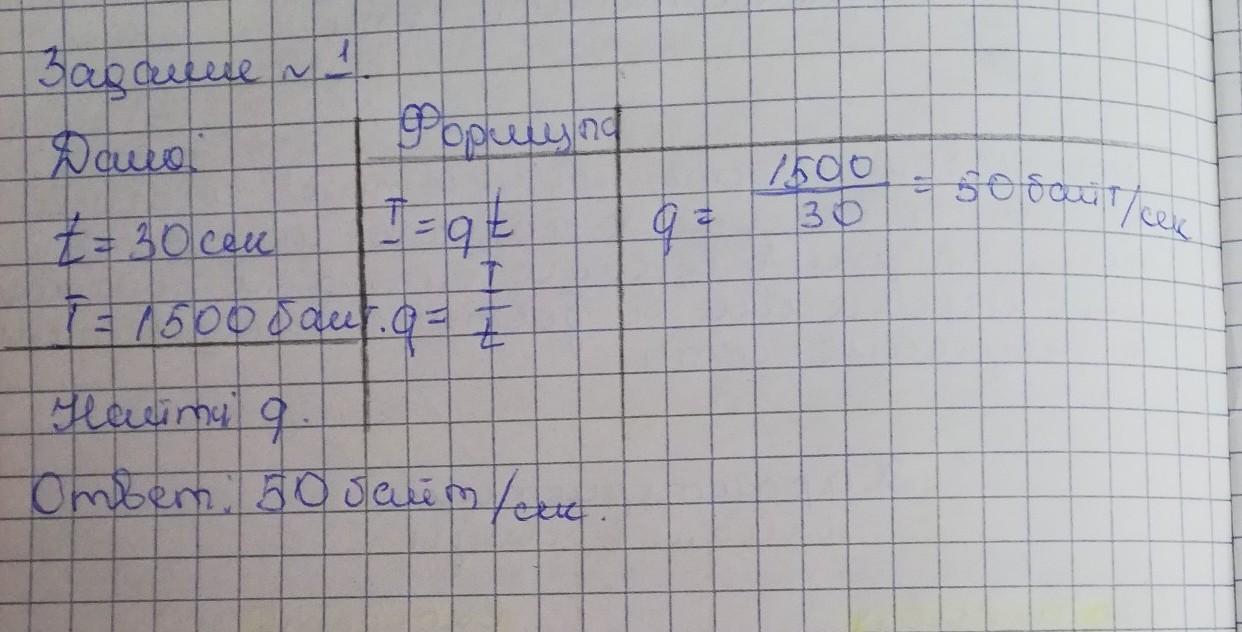 Задание № 1.
Дано:
t = 30 сек
I = 1500 байт.
Найти q.
Формула
I = qt
q = I/t
q = 1500/30 = 50 байт/сек
Ответ: 50 байт/сек.